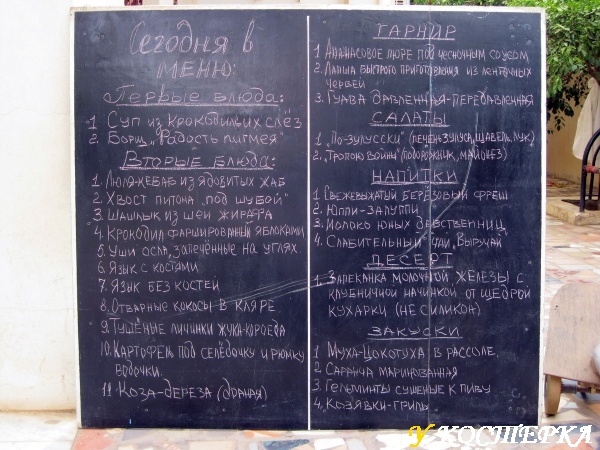 Сегодня в
меню:
Первые блюда:
1 Суп из крокодильих слёз
2. Борщ „Радость пигмея"
Вторые блюда:
1. Люля-кебаб из ядовитых жаб
2. Хвост питона „под шубой"
3. Шашлык из шеи жирафа
4. Крокодил фаршированный яблоками
5. Уши осла, запечённые на углях
6. Язык с костями
7. Язык без костей
8. Отварные кокосы в кляре
9. Тушёные личинки жука-короеда
10. Картофель под селёдочку и рюмку
водочки.
11. Коза-дереза (драная)
Гарнир
1 Ананасовое пюре под чесночным соусом
2. Лапша быстрого приготовления из ленточных
червей
3. Гуава давленная-передавленная
Салаты
1. „По-зулусски" (печень зулуса, щавель, лук)
2. „Тропою войны" (подорожник, майонез)
Напитки
1. Свежевыжатый берёзовый фреш
2. Юппи-залуппи
3. Молоко юных девственниц
4. Слабительный чай „Выручай"
Десерт
1. Запеканка молочной железы с
клубничной начинкой от щедрой
кухарки (не силикон)
Закуски
1. Муха-цокотуха в рассоле.
2. Саранча маринованная
3. Гельминты сушеные к пиву
4. Козявки-гриль
У КОСТЕРКА